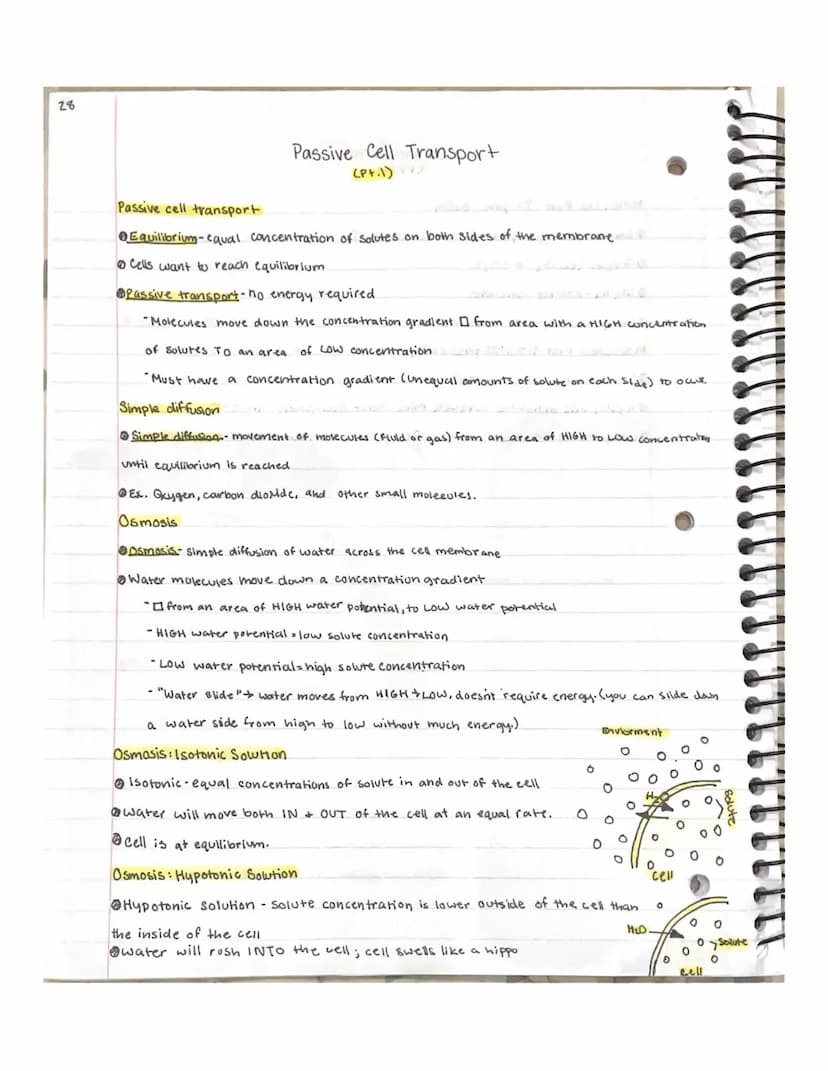 28
Passive Cell Transport
(Pt.1)
Passive cell transport
Equilibrium - equal concentration of solutes on both sides of the membrane
Cells want to reach equilibrium
Passive transport - no energy required
- Molecules move down the concentration gradient □ from area with a HIGH concentration
of solutes TO an area of LOW concentration
- Must have a concentration gradient (unequal amounts of solute on each side) to occur.
Simple diffusion
Simple diffusion - movement of molecules (fluid or gas) from an area of HIGH to LOW concentration
until equilibrium is reached
Ex. Oxygen, carbon dioxide, and other small molecules.
Osmosis
Osmosis - simple diffusion of water across the cell membrane
Water molecules move down a concentration gradient
- □ from an area of HIGH water potential, to LOW water potential
- HIGH water potential = low solute concentration
- LOW water potential = high solute concentration
- "Water slide" → water moves from HIGH → LOW, doesn't require energy. (you can slide down
a water slide from high to low without much energy.)
Osmosis: Isotonic Solution
Isotonic - equal concentrations of solute in and out of the cell
Water will move both IN + OUT of the cell at an equal rate.
Cell is at equilibrium.
Enviorment
H2O
Solute
Cell
Osmosis: Hypotonic Solution
Hypotonic solution - solute concentration is lower outside of the cell than
the inside of the cell
Water will rush INTO the cell; cell swells like a hippo
H2O
Solute
Cell